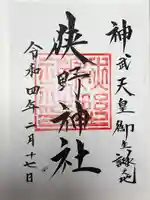 神武天皇御生誕地
狭野神社
令和四年二月十七日